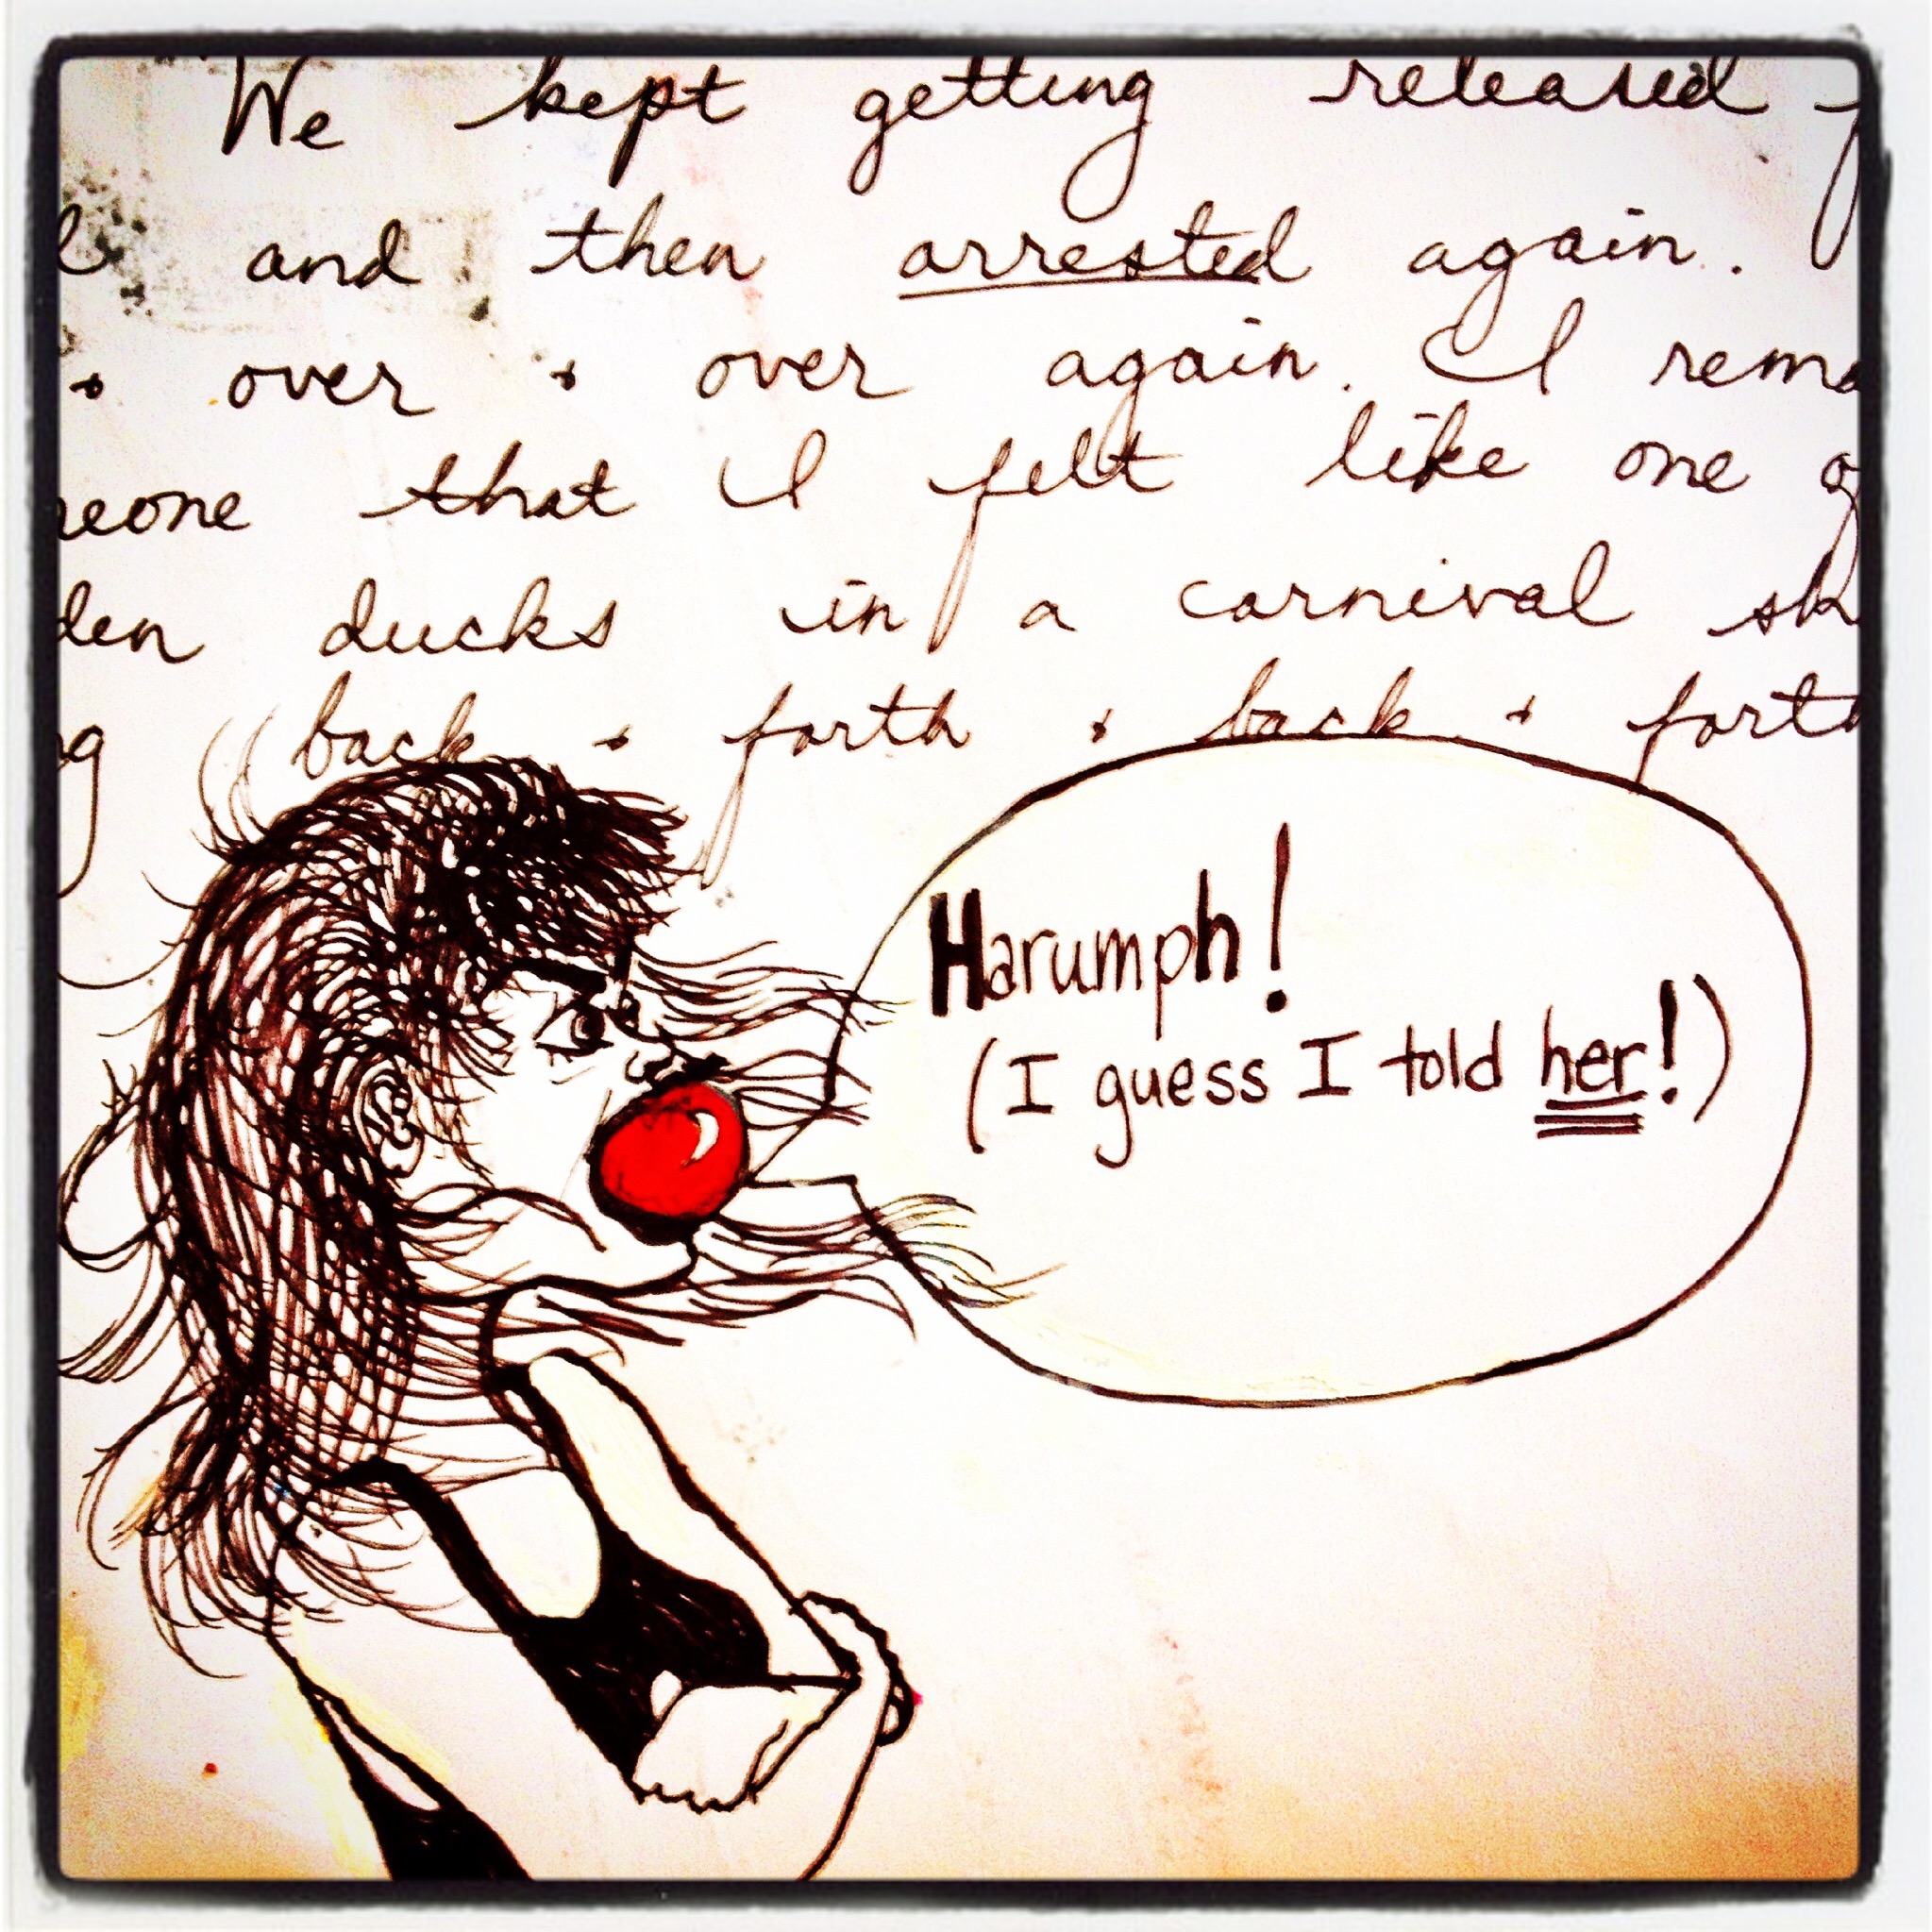 We kept getting released
and then arrested again.
+ over + over again. I rem
eone that I felt like one o
den ducks in a carnival sh
g back + forth + back + fort
Harumph!
(I guess I told her!)